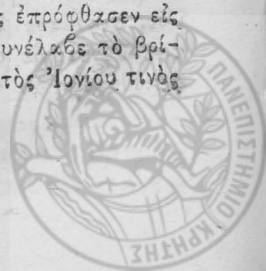 ς ἐπρόφθασεν εἰς
υνέλαβε τὸ βρί-
τὸς Ἰονίου τινὸς
ΠΑΝΕΠΙΣΤΗΜΙΟ ΚΡΗΤΗΣ